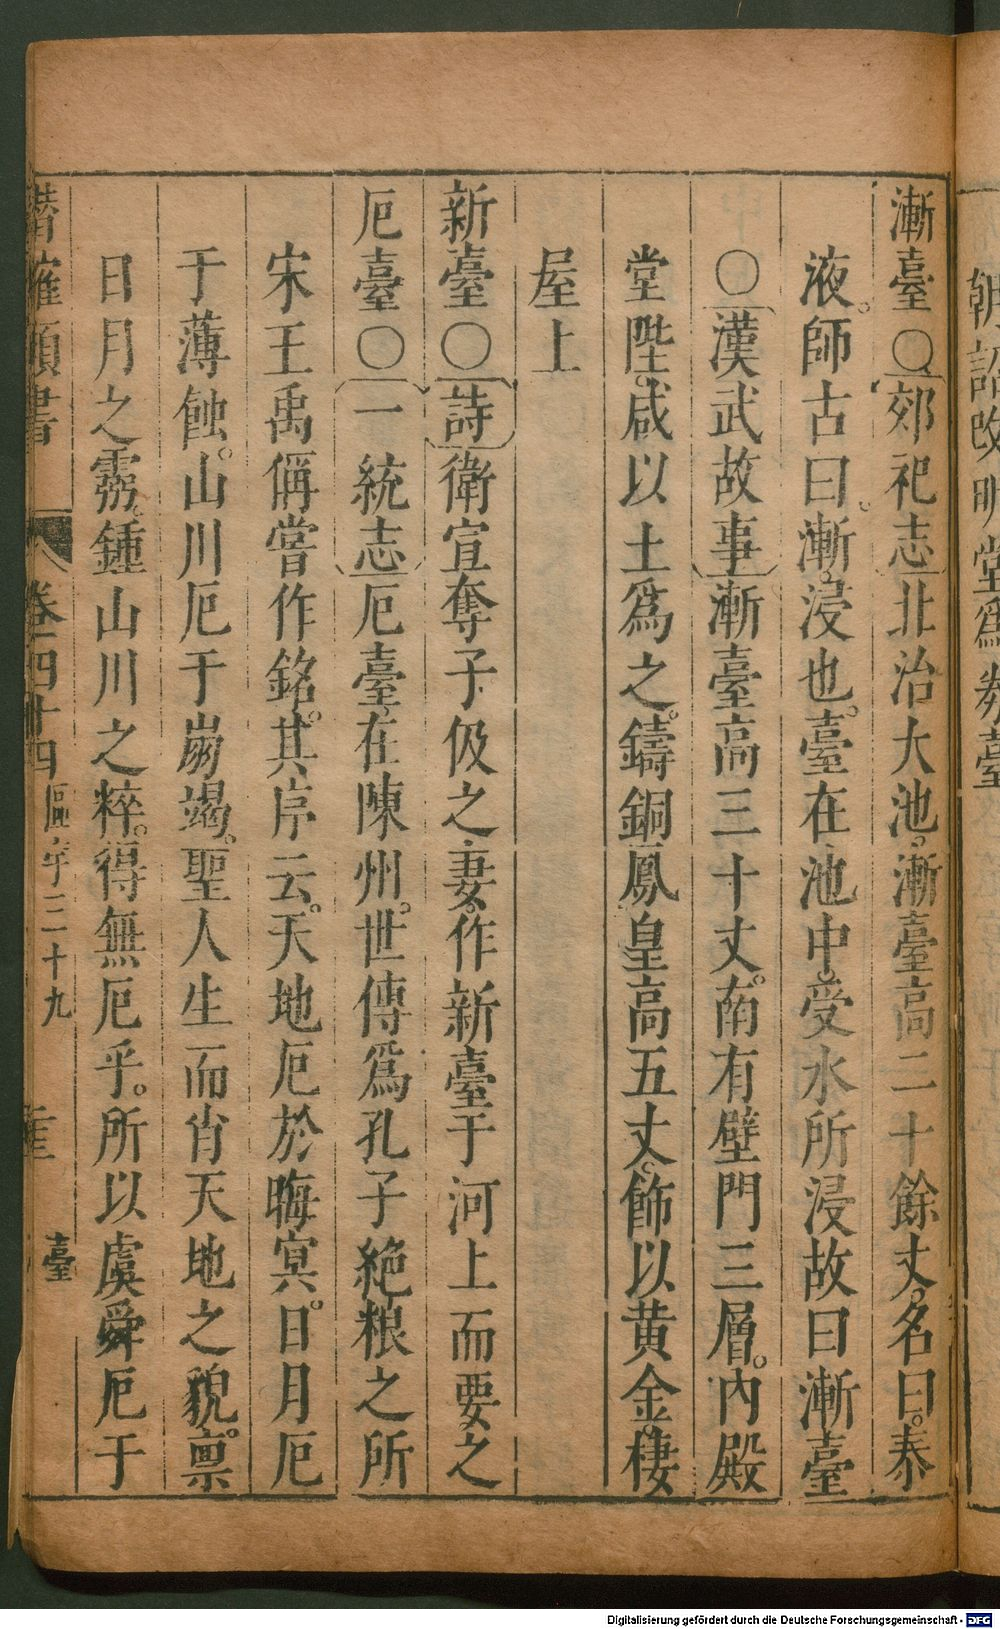 朝詔改明堂爲𭓇臺
漸臺○郊祀志北治大池。漸臺高二十餘丈。名曰。泰
液。師古曰。漸。浸也。臺在池中。受水所浸故曰漸。臺
○漢武故事漸臺高三十丈。南有壁門三層。內殿
堂陛。咸以土爲之。鑄銅鳳皇高五丈。飾以黄金。棲
屋上
新臺○詩衛宣奪子伋之妻。作新臺于河上而要之
厄臺○一統志厄臺。在陳州。世傳爲孔子絶粮之所
宋王禹偁嘗作銘。其序云。天地厄於晦冥。日月厄
于薄蝕。山川厄于崩竭。聖人生而肖天地之貌。禀
日月之靈。鍾山川之粹。得無厄乎。所以虞舜厄于
潛確類書 卷四十四 區宇三十九 臺
Digitalisierung gefördert durch die Deutsche Forschungsgemeinschaft - DFG